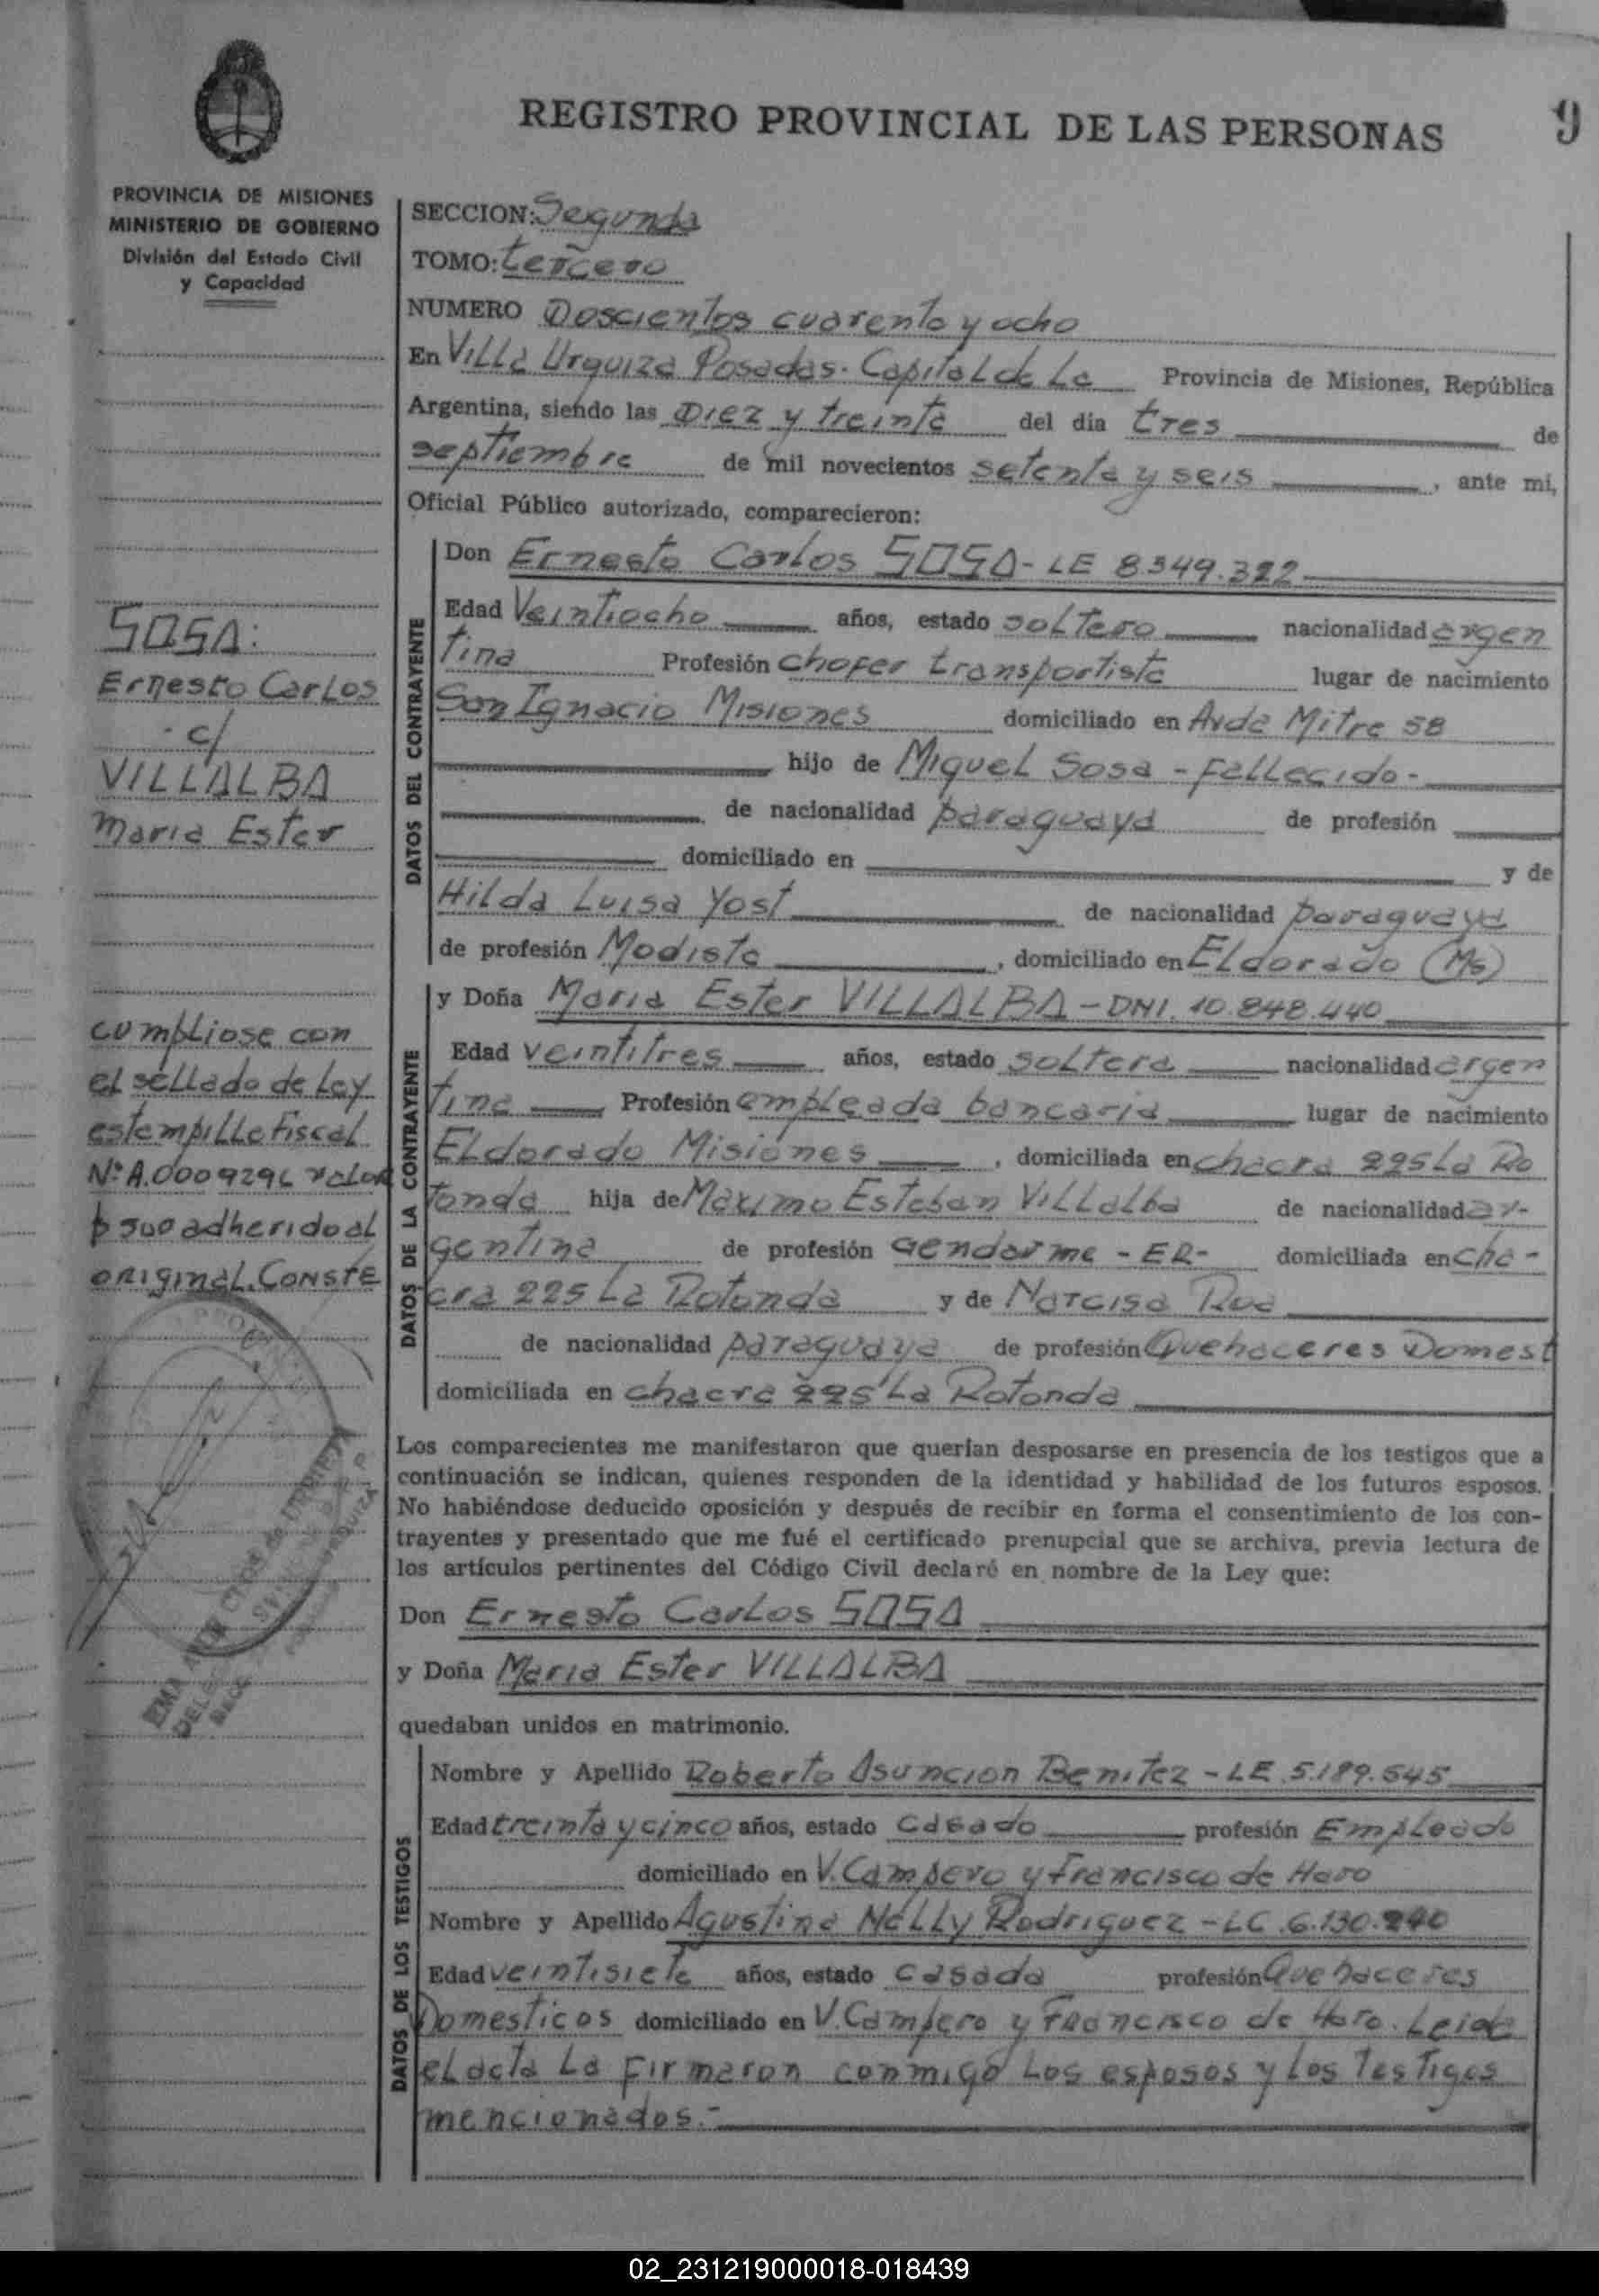 REGISTRO PROVINCIAL DE LAS PERSONAS
9
PROVINCIA DE MISIONES
MINISTERIO DE GOBIERNO
División del Estado Civil
y Capacidad
SECCION: Segunda
TOMO: tercero
NUMERO Doscientos cuarenta y ocho
En Villa Urquiza Posadas. Capital de La Provincia de Misiones, República
Argentina, siendo las Diez y treinta del dia tres de
septiembre de mil novecientos setenta y seis, ante mi,
Oficial Público autorizado, comparecieron:
DATOS DEL CONTRAYENTE
Don Ernesto Carlos SOSA - LE 8.349.322
Edad Veintiocho años, estado soltero nacionalidad argen
tina Profesión chofer transportista lugar de nacimiento
San Ignacio Misiones domiciliado en Avda Mitre 58
hijo de Miguel Sosa - Fallecido -
de nacionalidad paraguaya de profesión
domiciliado en y de
Hilda Luisa Yost de nacionalidad paraguaya
de profesión Modista, domiciliado en Eldorado (Ms)
SOSA:
Ernesto Carlos
c/
VILLALBA
Maria Ester
DATOS DE LA CONTRAYENTE
y Doña Maria Ester VILLALBA - DNI. 10.848.440
Edad veintitres años, estado soltera nacionalidad argen
tina Profesión empleada bancaria lugar de nacimiento
Eldorado Misiones, domiciliada en chacra 225 La Ro
tonda hija de Maximo Esteban Villalba de nacionalidad ar-
gentina de profesión Gendarme - ER - domiciliada en cha-
cra 225 La Rotonda y de Narcisa Rua
de nacionalidad paraguaya de profesión Quehaceres Domest
domiciliada en chacra 225 La Rotonda
cumpliose con
el sellado de Ley
estampilla Fiscal
Nº A.0009296 valor
$ 500 adherido al
original. CONSTE
Los comparecientes me manifestaron que querían desposarse en presencia de los testigos que a
continuación se indican, quienes responden de la identidad y habilidad de los futuros esposos.
No habiéndose deducido oposición y después de recibir en forma el consentimiento de los con-
trayentes y presentado que me fué el certificado prenupcial que se archiva, previa lectura de
los artículos pertinentes del Código Civil declaré en nombre de la Ley que:
Don Ernesto Carlos SOSA
y Doña Maria Ester VILLALBA
quedaban unidos en matrimonio.
DATOS DE LOS TESTIGOS
Nombre y Apellido Roberto Asuncion Benitez - LE 5.189.545
Edad treinta y cinco años, estado casado profesión Empleado
domiciliado en V. Campero y Francisco de Haro
Nombre y Apellido Agustina Nelly Rodriguez - LC .6.130.240
Edad veintisiete años, estado casada profesión Quehaceres
Domesticos domiciliado en V. Campero y Francisco de Haro. Leida
el acta La Firmaron conmigo Los esposos y Los Testigos
mencionados.-
02_231219000018-018439